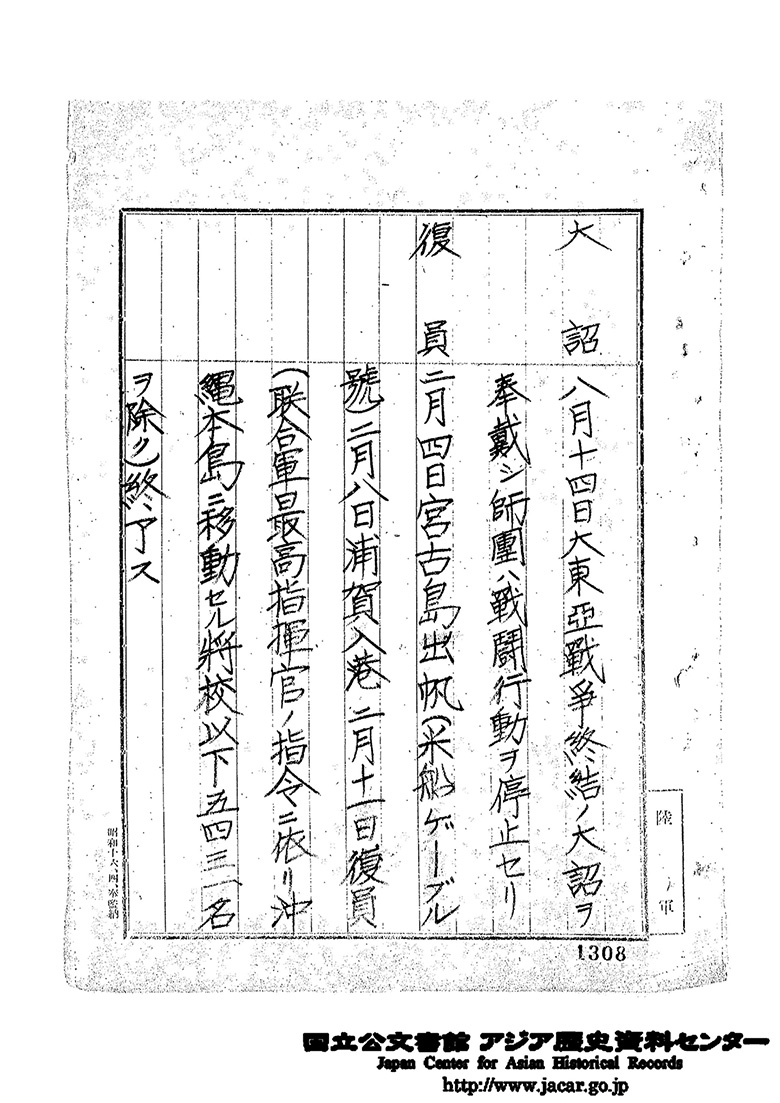 大詔 八月十四日大東亞戰爭終結ノ大詔ヲ
奉戴シ師團ハ戰鬪行動ヲ停止セリ
復員 二月四日宮古島出帆(米船ゲーブル
號)二月八日浦賀入港二月十一日復員
(联合軍最高指揮官ノ指令ニ依リ沖
縄本島ニ移動セル將校以下五四三一名
ヲ除ク)終了ス
陸軍
1308
国立公文書館 アジア歴史資料センター
Japan Center for Asian Historical Records
http://www.jacar.go.jp